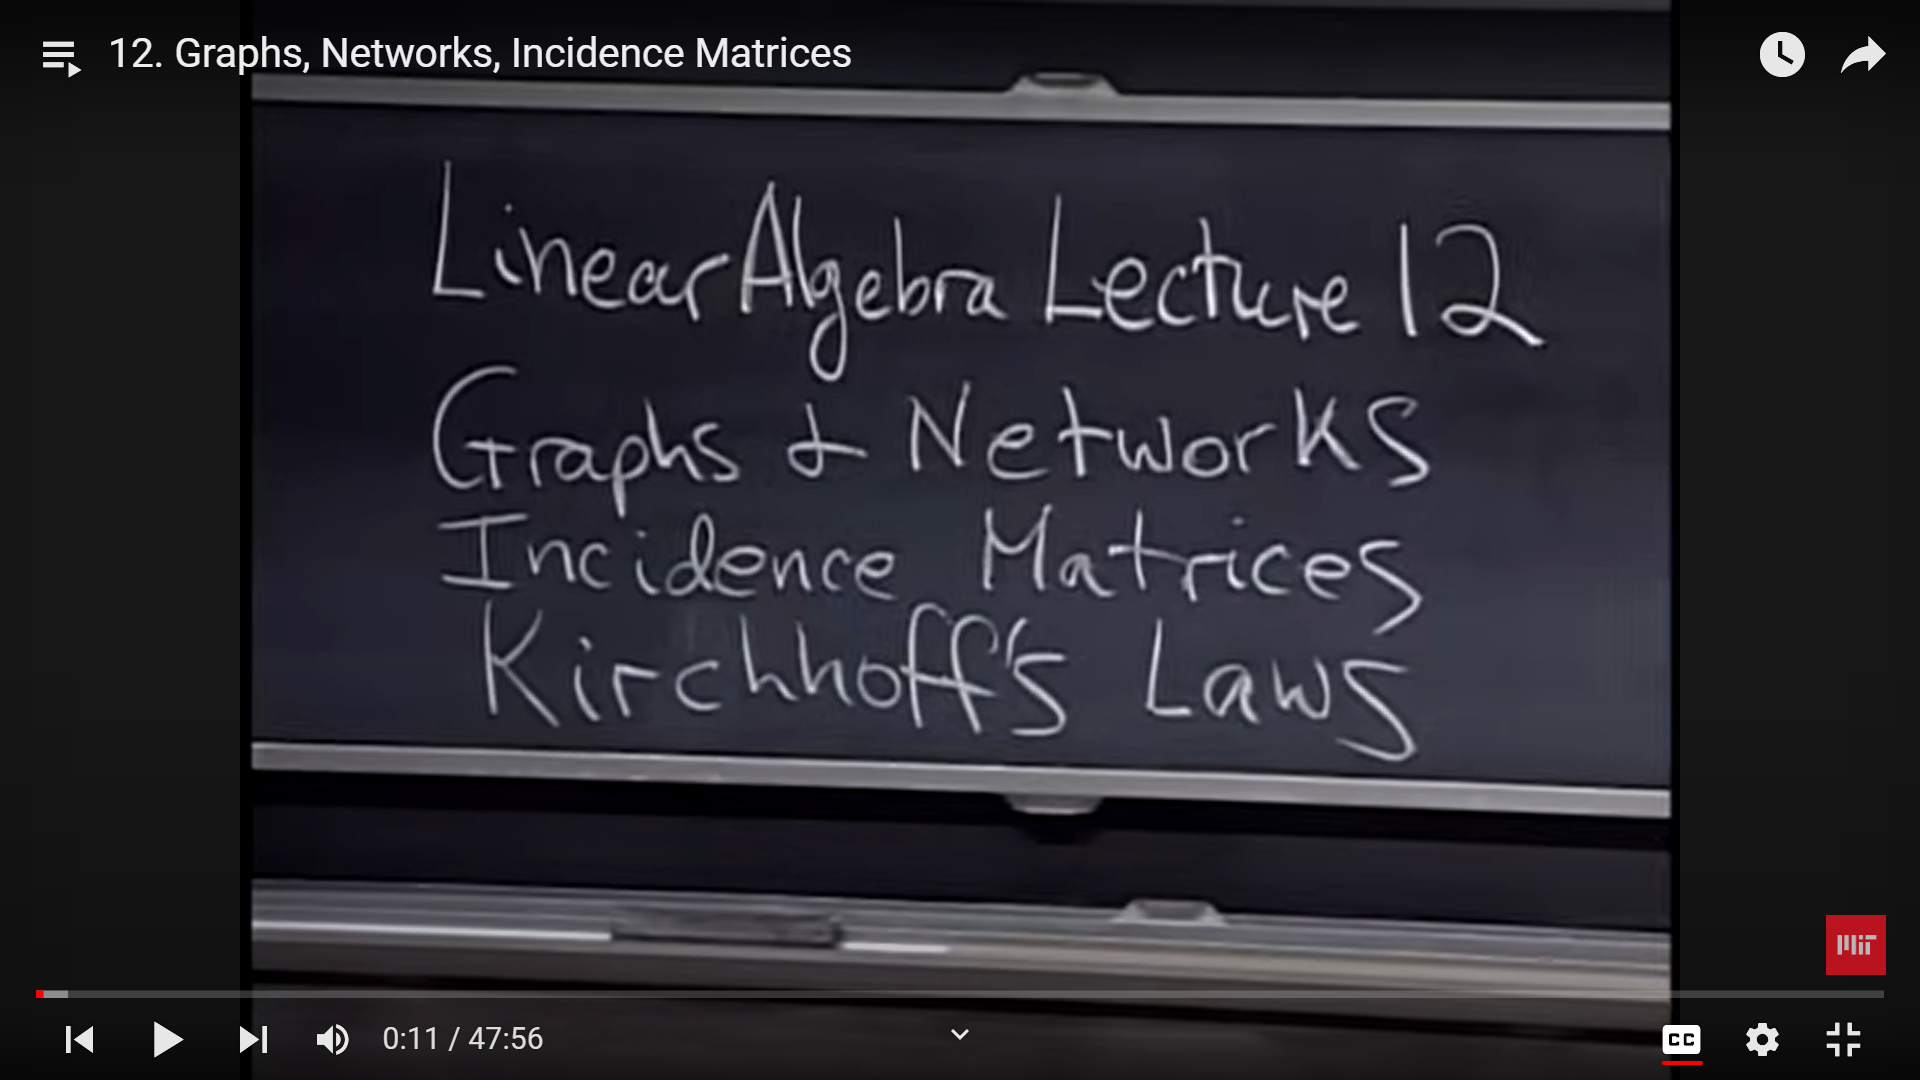 12. Graphs, Networks, Incidence Matrices
Linear Algebra Lecture 12
Graphs & Networks
Incidence Matrices
Kirchhoff's Laws
MIT
0:11 / 47:56
CC